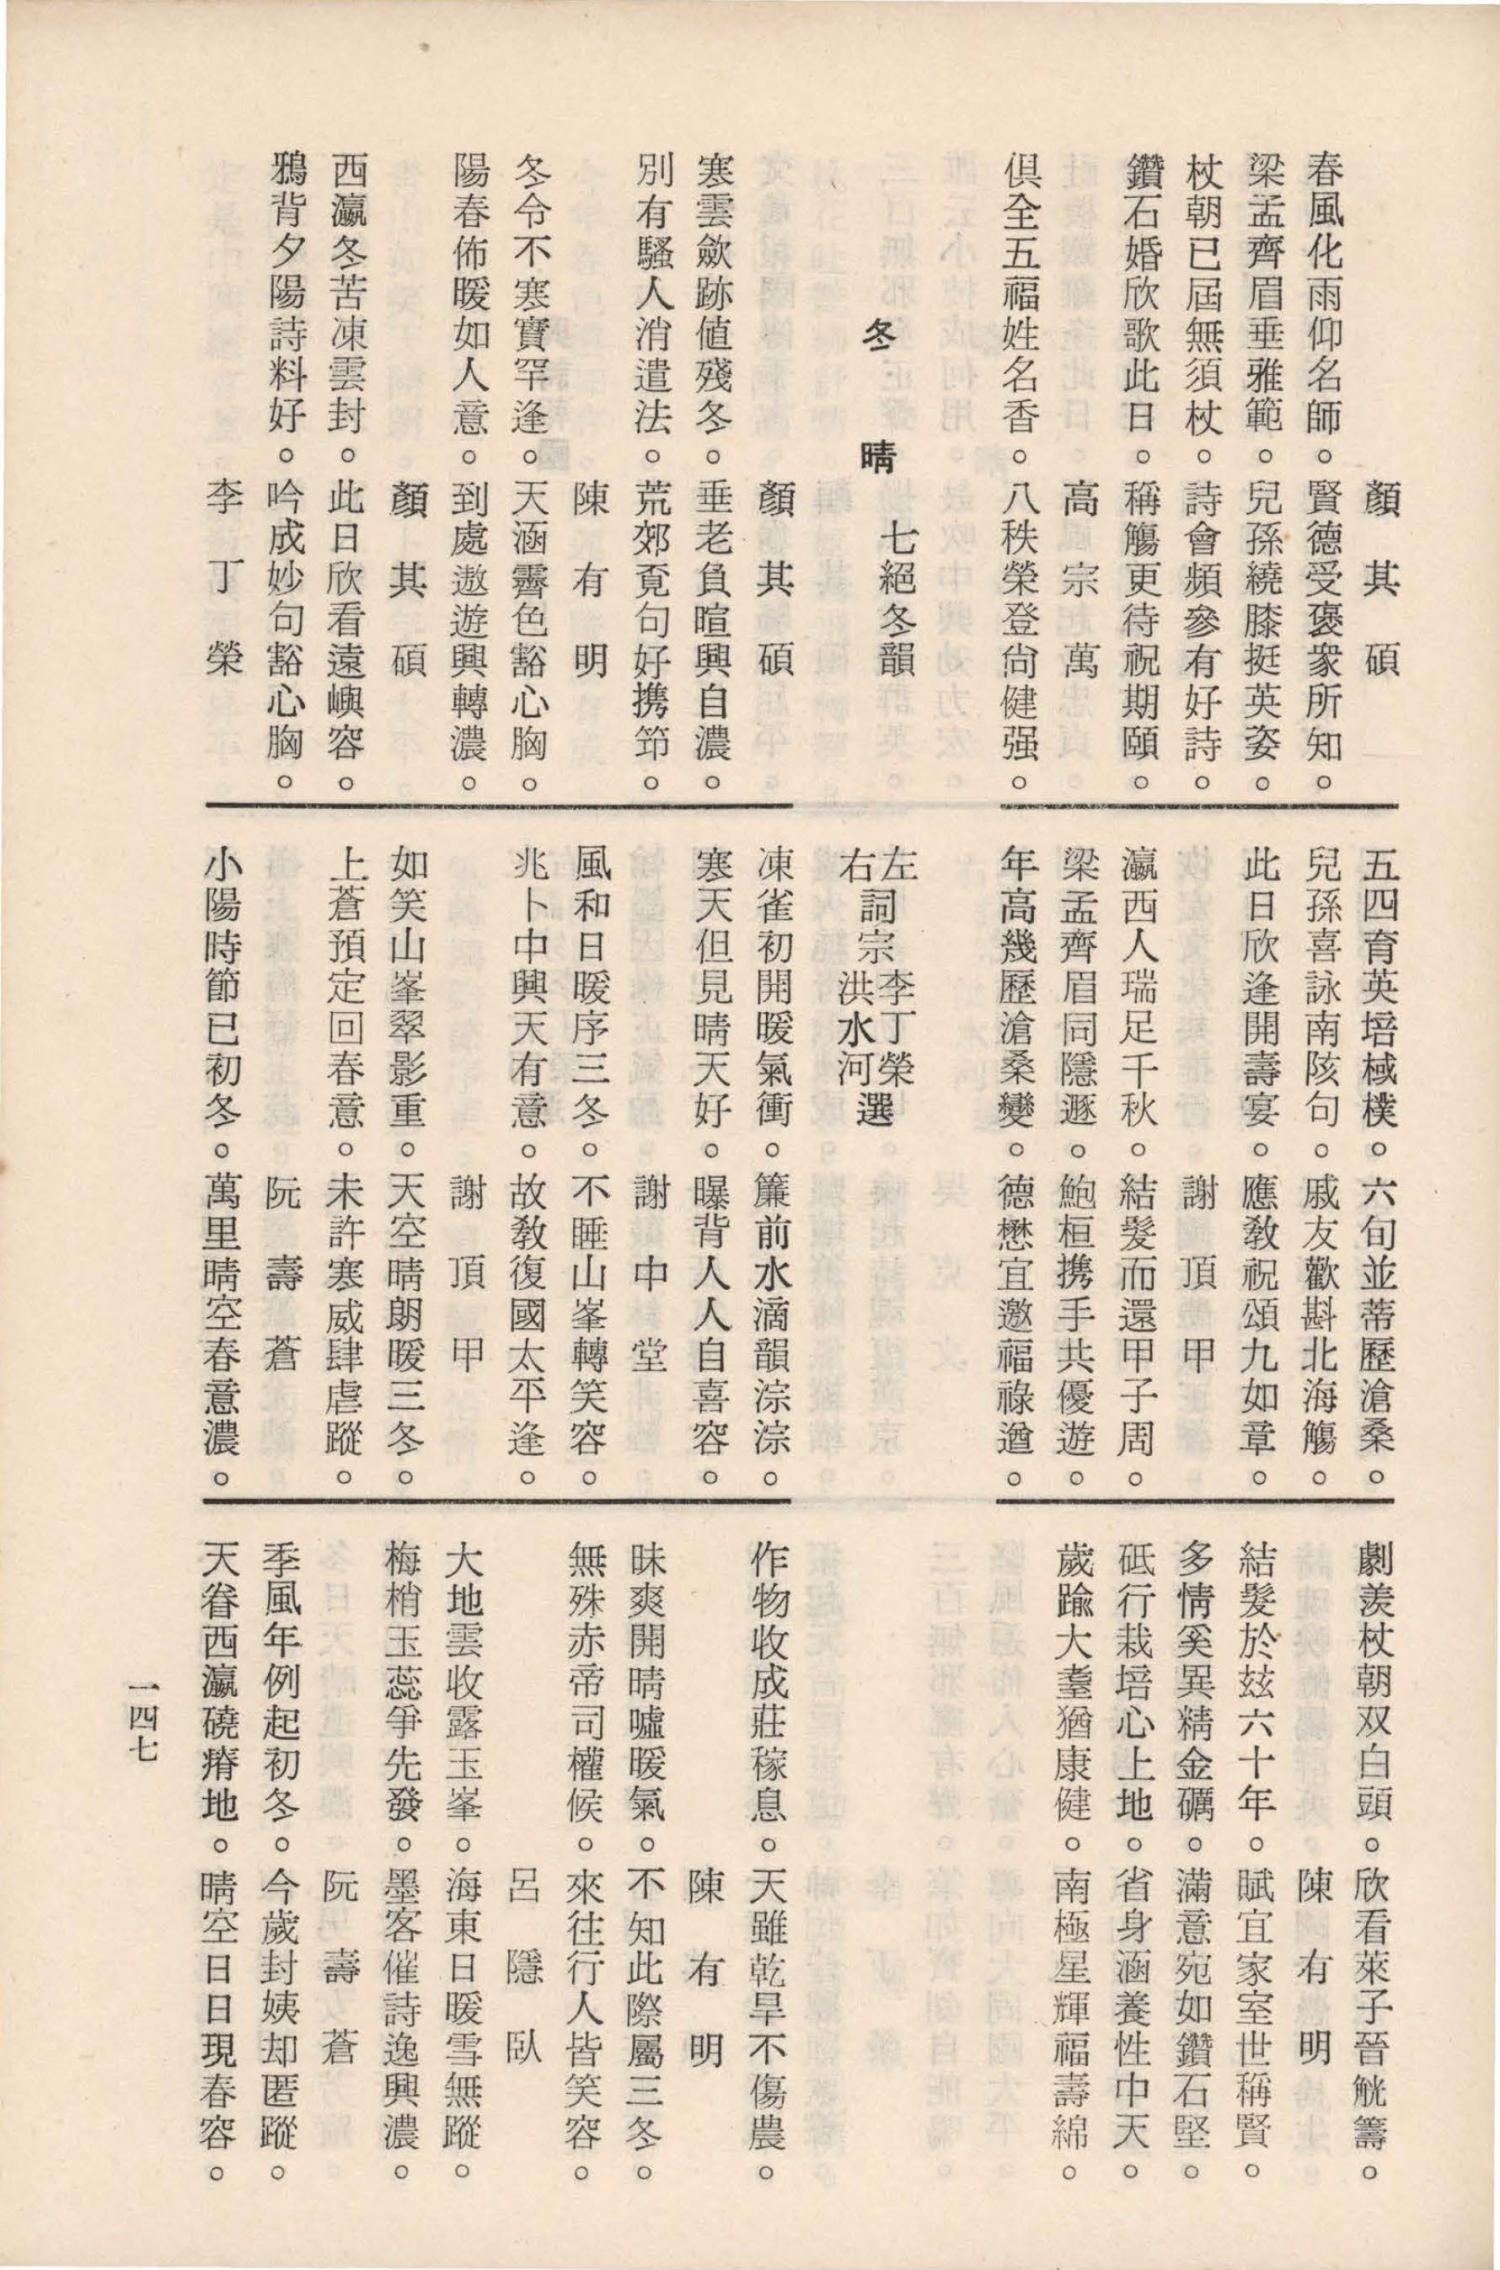 顏其碩
春風化雨仰名師。賢德受褒衆所知。
梁孟齊眉垂雅範。兒孫繞膝挺英姿。
杖朝已屆無須杖。詩會頻參有好詩。
鑽石婚欣歌此日。稱觴更待祝期頤。
高宗萬
俱全五福姓名香。八秩榮登尙健强。
五四育英培棫樸。六旬並蒂歷滄桑。
兒孫喜詠南陔句。戚友歡斟北海觴。
此日欣逢開壽宴。應敎祝頌九如章。
謝頂甲
瀛西人瑞足千秋。結髮而還甲子周。
梁孟齊眉同隱遯。鮑桓携手共優遊。
年高幾歷滄桑變。德懋宜邀福祿遒。
劇羨杖朝双白頭。欣看萊子晉觥籌。
陳有明
結髮於玆六十年。賦宜家室世稱賢。
多情奚異精金礪。滿意宛如鑽石堅。
砥行栽培心上地。省身涵養性中天。
歲踰大耋猶康健。南極星輝福壽綿。
冬晴 七絕冬韻
左詞宗李丁榮選
右詞宗洪水河選
顏其碩
寒雲歛跡値殘冬。垂老負暄興自濃。
別有騷人消遣法。荒郊覔句好携筇。
陳有明
冬令不寒實罕逢。天涵霽色豁心胸。
陽春佈暖如人意。到處遨遊興轉濃。
顏其碩
西瀛冬苦凍雲封。此日欣看遠嶼容。
鴉背夕陽詩料好。吟成妙句豁心胸。
李丁榮
凍雀初開暖氣衝。簾前水滴韻淙淙。
寒天但見晴天好。曝背人人自喜容。
謝中堂
風和日暖序三冬。不睡山峯轉笑容。
兆卜中興天有意。故敎復國太平逢。
謝頂甲
如笑山峯翠影重。天空晴朗暖三冬。
上蒼預定回春意。未許寒威肆虐蹤。
阮壽蒼
小陽時節已初冬。萬里晴空春意濃。
作物收成莊稼息。天雖乾旱不傷農。
陳有明
昧爽開晴噓暖氣。不知此際屬三冬。
無殊赤帝司權候。來往行人皆笑容。
呂隱臥
大地雲收露玉峯。海東日暖雪無蹤。
梅梢玉蕊爭先發。墨客催詩逸興濃。
阮壽蒼
季風年例起初冬。今歲封姨却匿蹤。
天眷西瀛磽瘠地。晴空日日現春容。
一四七